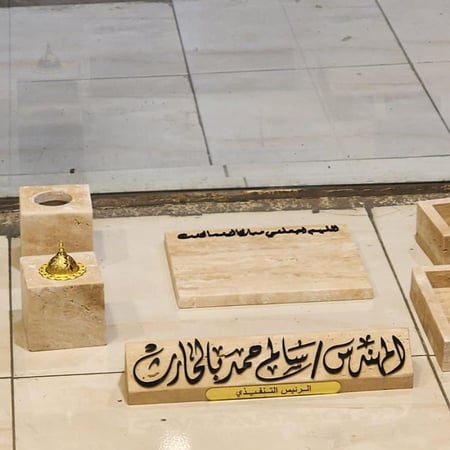 اللهم اجعلني مباركا اينما كنت
المهندس / سالم حمد بالحارث
الرئيس التنفيذي